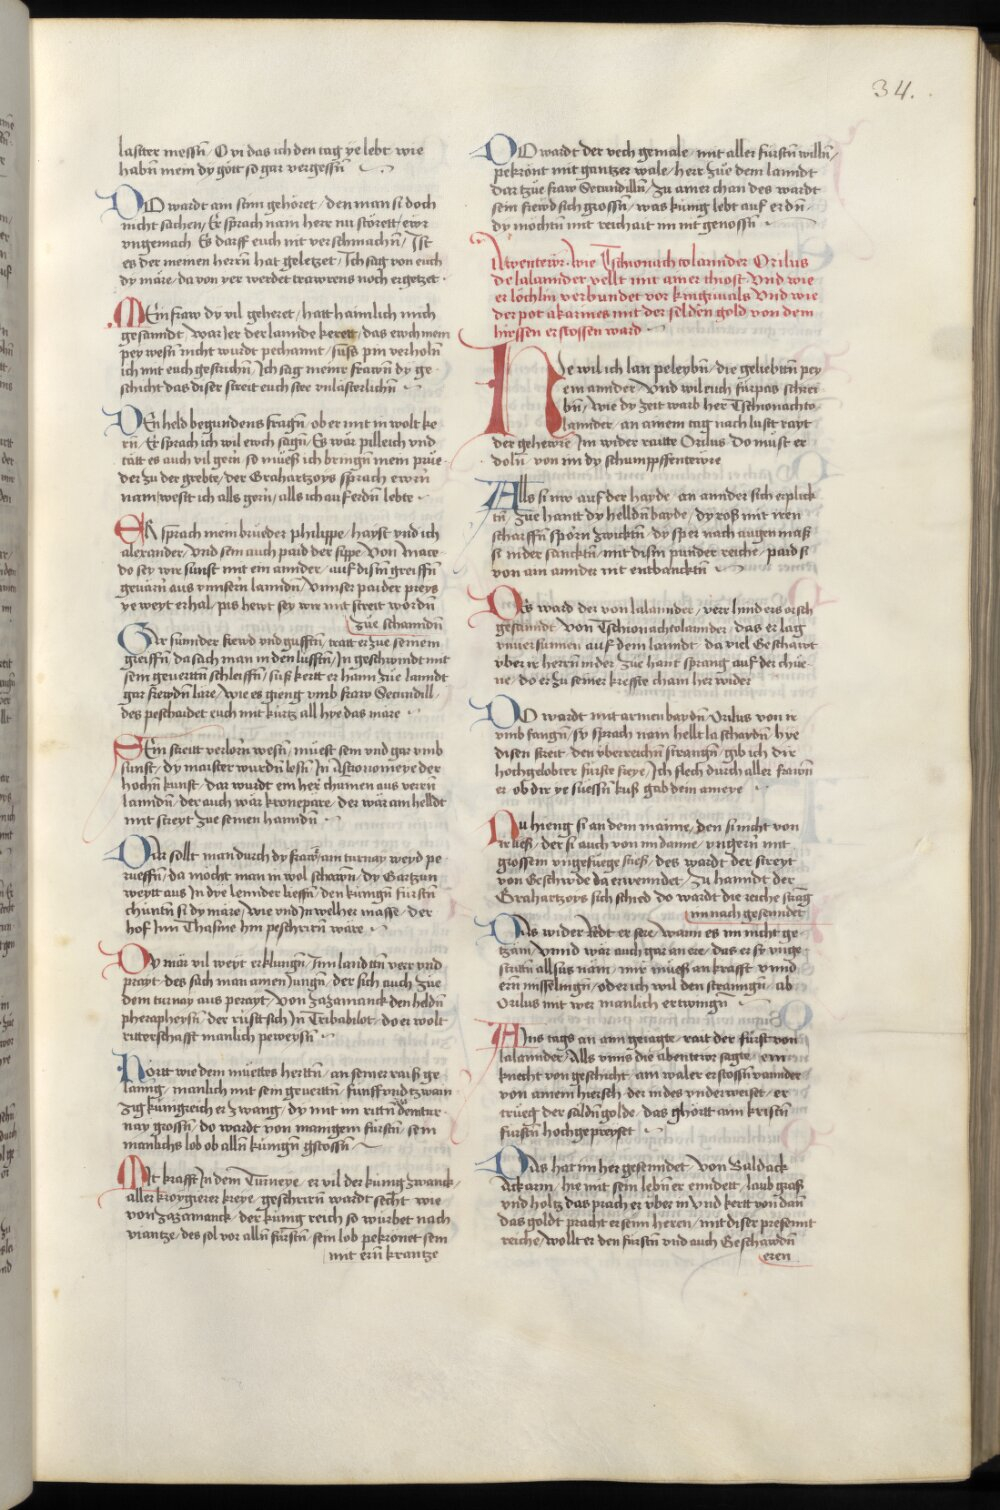 34.
laster messn / O vi das ich den tag ye lebt wie
habn mein dy gött so gar vergessn
DO wardt am sinn gehöret / den man si doch
nicht sachen / Er sprach nain herr nu störett ewr
vngemach Es darff euch nit verschmachn / Ist
es der meinen herrn hat geletzet / Ich sag von euch
dy märe / da von yer werdet trawrens noch ergetzet
MEin fraw dy vil geheret / hatt haimlich mich
gesanndt / war yer der lannde kerett / das ewch mein
pey wesn nicht wurdt pechannt / sunss pin verholn
ich mit euch gestrichn / Ich sag meinr frawn dy ge
schicht das diser streit euch stee vnlästerlichn
DEr held begundens fragn / ob er mit in wolt ke
rn / Er sprach ich wil ewch sagn / Es wär pilleich vnd
tätt es auch vil gern so muess ich bringn mein prue
der zu der grebte / der Grahartzoys sprach ewrn
nam / wesst ich alls gern / alls ich auf erdn lebte
ER sprach mein brueder philippe / hayst vnd ich
alexander / vnd sein auch paid der sippe von Mace
do sey wir sunst mit ein annder / auf disn greiffn
gevarn aus vnnsern lanndn / vnnser paider preys
ye weyt erhal / pis hewt sey wir mit streit wordn
zue schanndn
Gar sunnder frewd vnd gufftn / tratt er zue seinem
greiffn / da sach man in den lufftn / In geschwindt mit
sein geverttn schleiffn / suss kert er haim zue lanndt
gar frewdn lare / wie es gieng vmb fraw Secundill
des peschaidet euch mit kurtz all hye das mare
SEin streitt verlorn wesn / muest sein vnd gar vmb
sunst / dy maister wurdn lesn / In Astronomeye der
hochn kunst / dar wurdt ein her chamen aus verrn
lanndn / der auch wär kronepare / der wär am helldt
mit streyt zue seinen hanndn
Dir sollt man durch dy fraw am turnay weyd pe
rueffn / da möcht man in wol schawn / dy Gartzun
weytt aus In dye lennder lieffn / den kunign furstn
chuntn si dy märe / wie vnd In welher masse / der
hof Inn Thasme hin peschrirn ware
DY mär vil weyt erklungn / Inn lanndtn verr vnd
prayt / des sach man amen Jungn / der sich auch zue
dem turnay aus perayt / von zazamanck den heldn
pherapheysn / der russt sich In Tribabilot / do er wolt
ritterschafft manlich peweysn
Hortt wie dem muettes herttn / an seiner raiss ge
lanng / manlich mit sein geverttn / funff vnd tzwain
zig kunigreich er zwang / dy mit im rittn den tur
nay grossn / do wardt von manigem furstn / sein
manlichs lob ob alln kunign gstossn
Mit krafft In dem Turneye / er vil der kunig zwanck
aller kroygierer kreye / geschrirn wardt secht / wie
von zazamanck / der kunig reich so wurbet nach
viantze / des sol vor alln furstn / sein lob pekronet sein
mit ern krantze
DO wardt der vech gemale / mit aller furstn willn /
pekrönt mit gantzer wale / herr zue dem lanndt
dar tzue fraw Secundilln / zu ainer chan des wardt
sein frewd sich grossn / was kunig lebt auf erdn
dy mochtn mit reichait im nit genossn
Awentewr · wie Tschionachtolannder Orilus
de lalannder vellt mit ainer thiost · vnd wie
er lochlin verbundet vor kingrivals vnd wie
der pot akarines mit der selden gold von dem
hirssen erstossen ward
HIe wil ich lan peleybn / die geliebttn pey
ein annder / vnd wil euch furpas schrei
bn / wie dy zeit warb her Tschionachto
lannder / an ainem tag nach lust rayt
der gehewre / Im wider raitte Orilus / do must er
doln · von im dy schumpffentewre
Alls si nw auf der hayde / an annder sich erplick
tn / zue hantt dy helldn bayde / dy ross mit iren
scharffn sporn zwicktn / dy sper nach augen mass
si nider sancktn / mit disn punder reiche / paid si
von ain annder nit entbancktn
Des ward der von lalannder / verr hinders orsch
gesanndt · von Tschionachtolannder / das er lag
vnversunnen auf dem lanndt · da viel Geschawt
vber ir herrn nider / zue hant sprang auf der chue
ne / do er zu seiner kreffte cham her wider
DO wardt mit armen baydn / Orilus von ir
vmb fangn / sy sprach nain hellt la schaydn / hye
disen streit · den vberreichn strangn / gib ich dir
hochgelobter furste freye / Ich slech durch aller frawn
er ob dir ye suessn kuss gab dein ameye
Nu hieng si an dem manne / den si nicht von
ir liess / der si auch von im danne / vngern mit
grossem vngefuege stiess / des wardt der streyt
von Geschwde da erwenndet / zu hanndt der
Grahartzoys sich schied do wardt die reiche skäg
im nach gesenndet
Das wider redt er sere / wann es im nicht ge
tzäm / vnnd wär auch gar an ere / das er sy vnge
strittn allsus näm / mir muess an krafft vnnd
ern misselingn / oder ich wil den stranngn / ab
Orilus mit wer manlich ertwingn
Ains tags an ain geiagte · rait der furst von
lalannder / Alls vnns die abentewr sagte / ein
knecht von geschicht · am waler erstossn vannder
von ainem hiersch / der indes vnderweiset / er
trueg der saldn golde / das ghörtt ainn kristn
furstn hochgepreyset
Das hat im her gesenndet / von Baldack
Ackarin / hie mit sein lebn er enndett / laub grass
vnd holtz das prach er vber in vnd kertt von dan
das goldt pracht er seim herren / mit diser presennt
reiche / wollt er den furstn vnd auch Geschawdn
eren